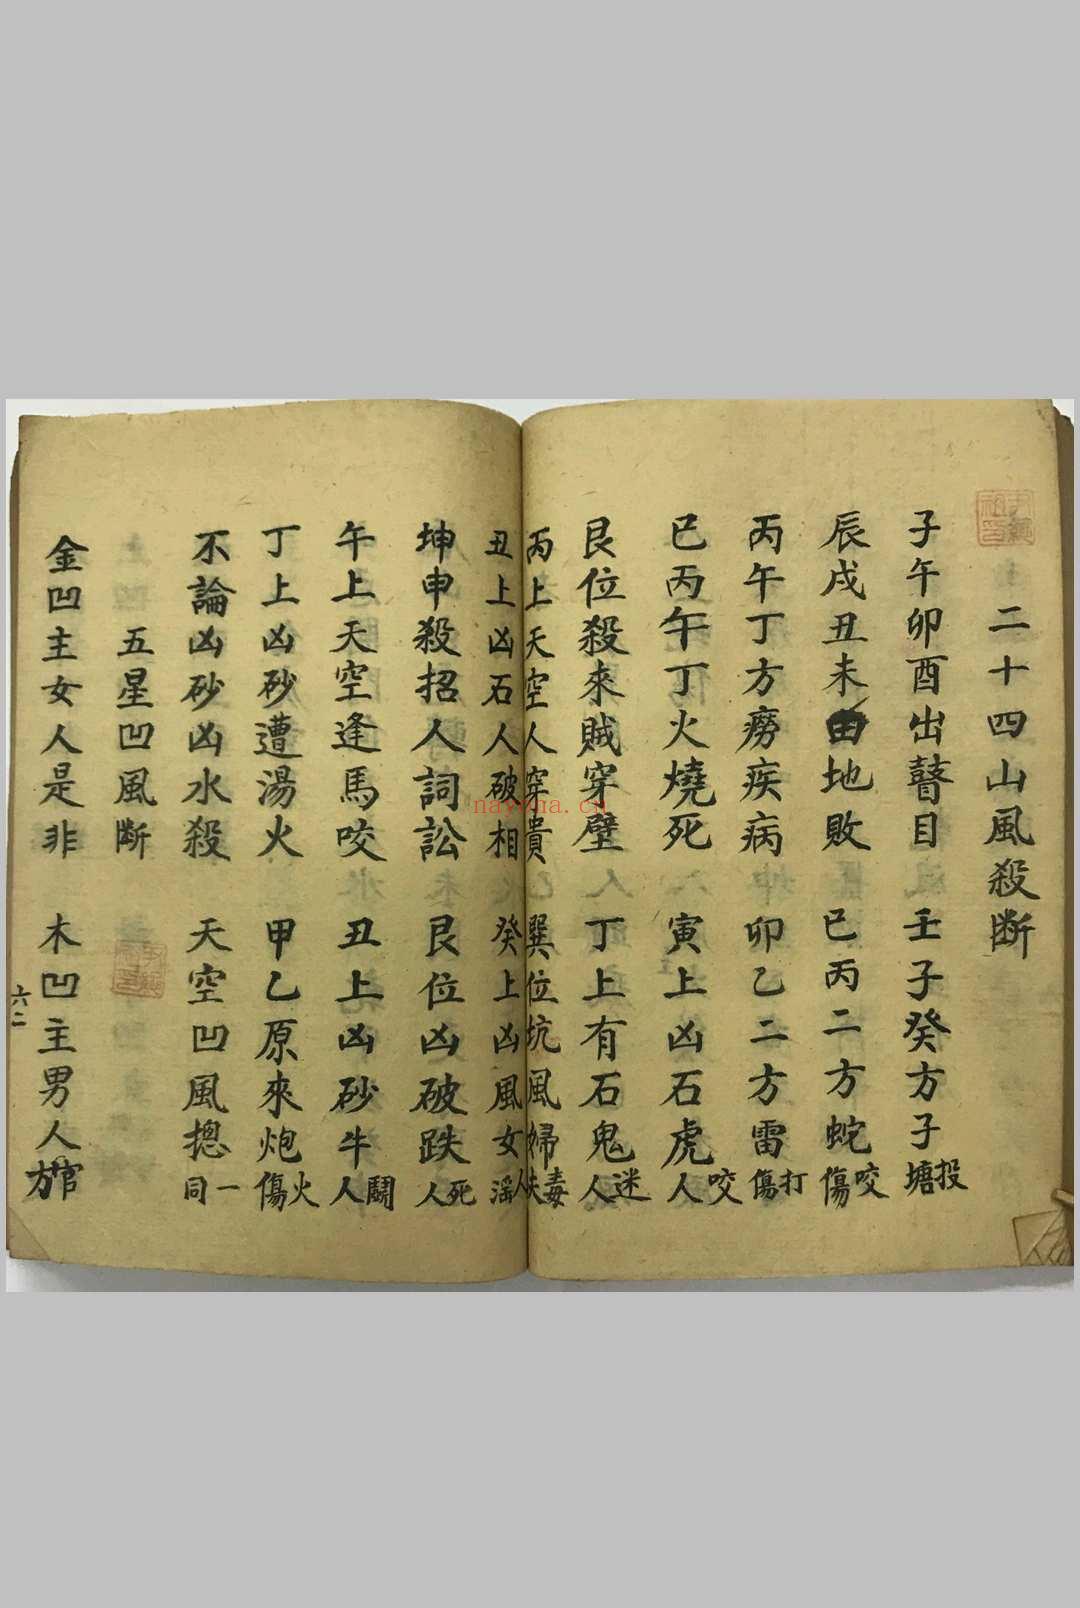 二十四山風殺斷
子午卯酉出瞽目 壬子癸方子投塘
辰戌丑未田地敗 巳丙二方蛇咬傷
丙午丁方癆疾病 卯乙二方雷打傷
巳丙午丁火燒死 寅上凶石虎咬人
艮位殺來賊穿壁 丁上有石鬼迷人
丙上天空人穿貴 巽位坑風婦毒夫
丑上凶石人破相 癸上凶風女人淫
坤申殺招人詞訟 艮位凶破跌死人
午上天空逢馬咬 丑上凶砂牛鬪人
丁上凶砂遭湯火 甲乙原來炮火傷
不論凶砂凶水殺 天空凹風摠一同
五星凹風断
金凹主女人是非 木凹主男人官方
六二
nayona.cn